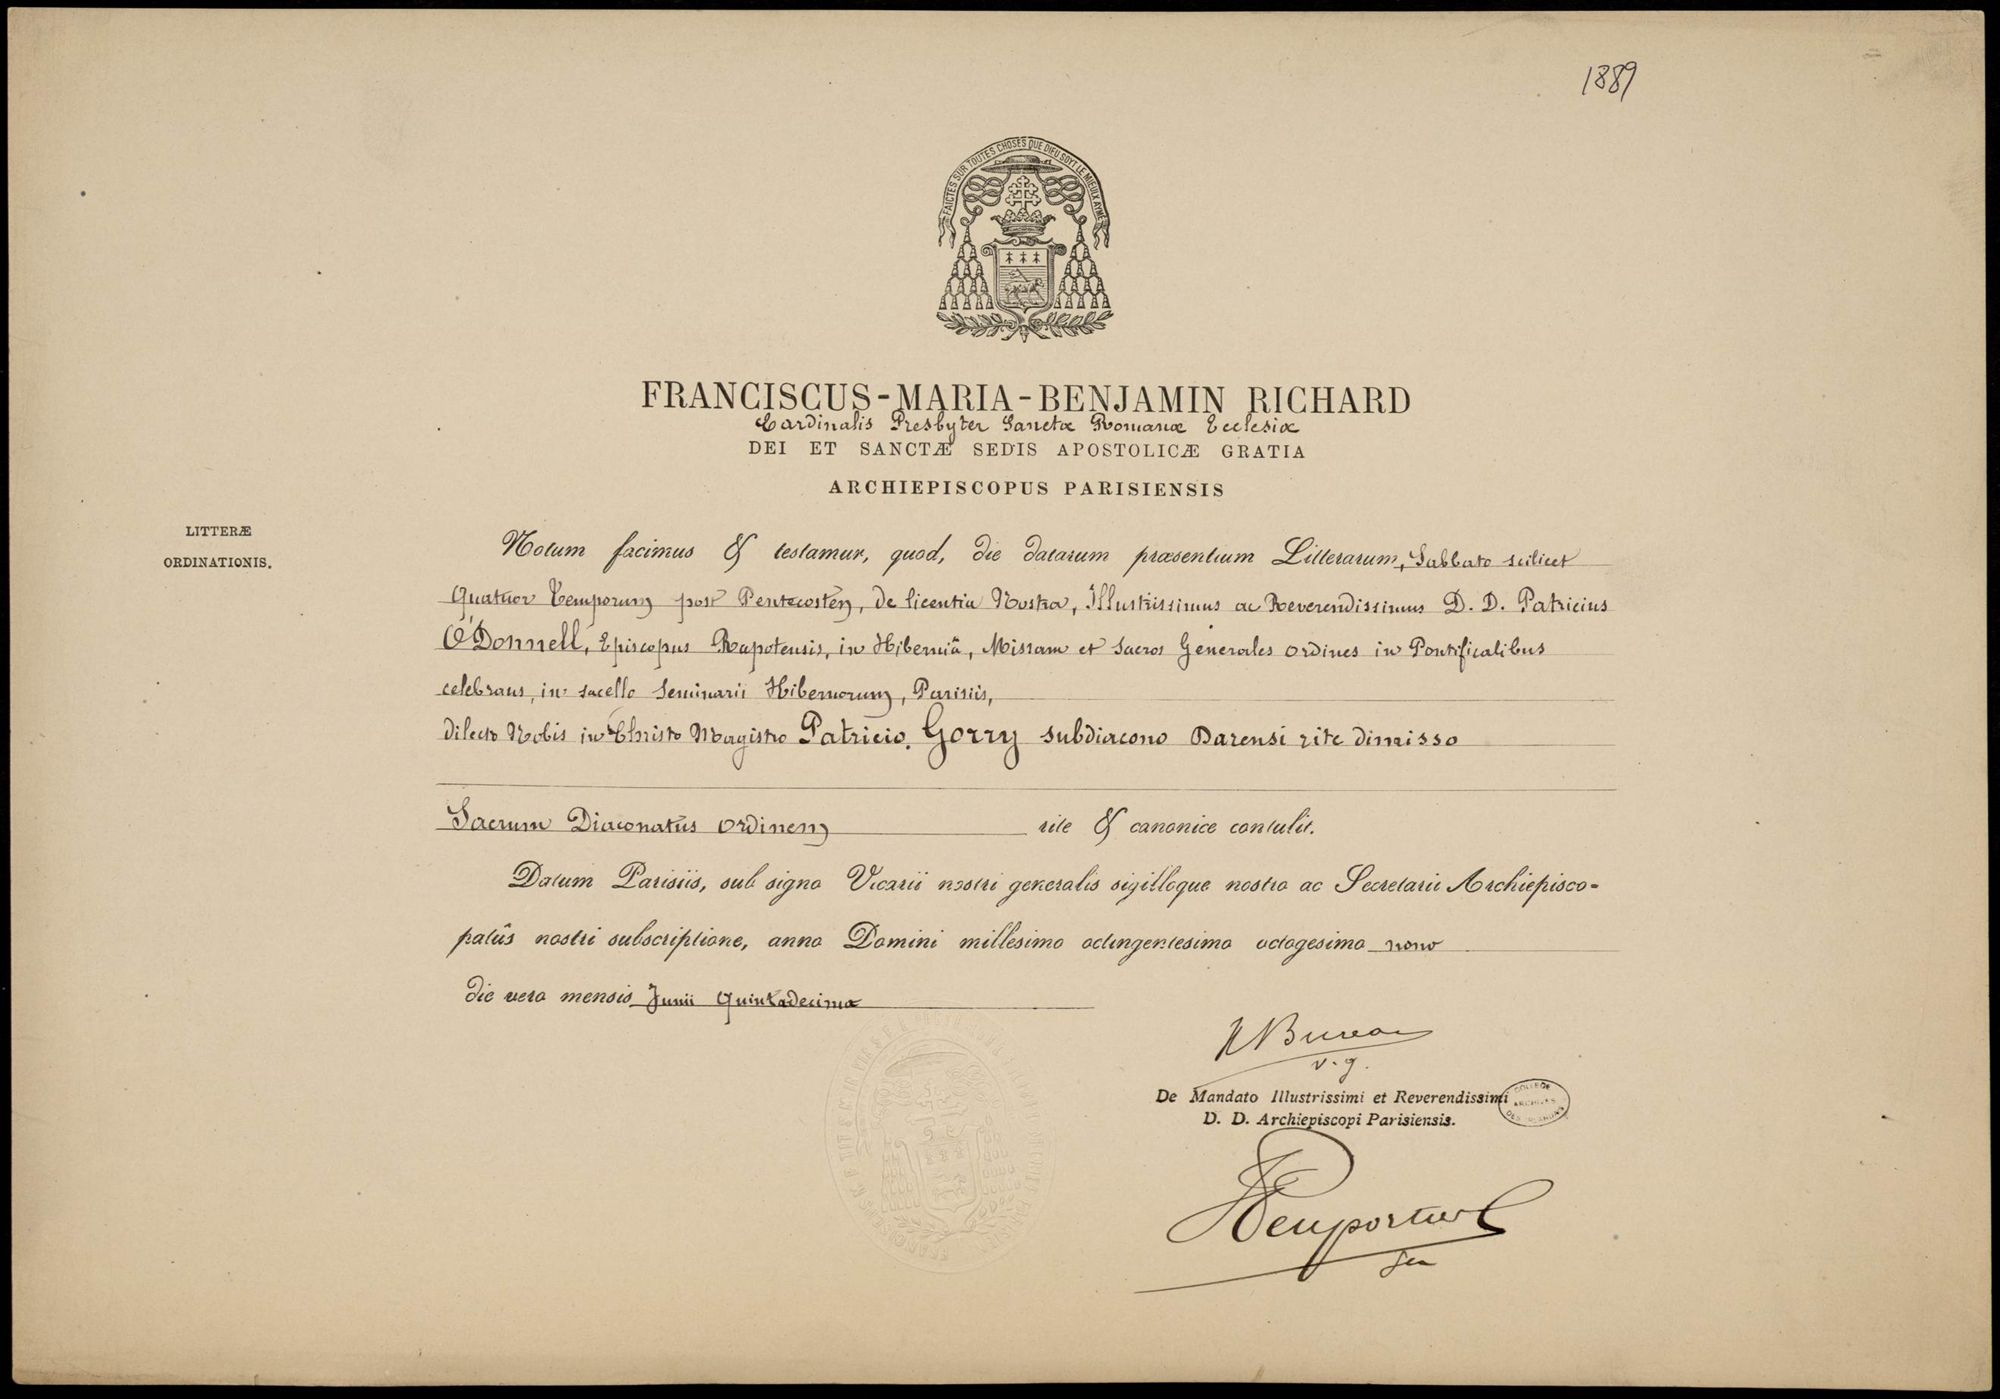 1889
FAICTES SUR TOUTES CHOSES QUE DIEU SOYT LE MIEULX AYMÉ
FRANCISCUS-MARIA-BENJAMIN RICHARD
Cardinalis Presbyter Sanctæ Romanæ Ecclesiæ
DEI ET SANCTÆ SEDIS APOSTOLICÆ GRATIA
ARCHIEPISCOPUS PARISIENSIS
LITTERÆ
ORDINATIONIS.
Notum facimus & testamur, quod, die datarum præsentium Litterarum, Sabbato scilicet
Quatuor Temporum post Pentecosten, de licentia Nostra, Illustrissimus ac Reverendissimus D. D. Patricius
O'Donnell, Episcopus Rapotensis, in Hiberniâ, Missam et Sacros Generales ordines in Pontificalibus
celebrans, in sacello Seminarii Hibernorum, Parisiis,
dilecto Nobis in Christo Magistro Patricio Gorry subdiacono Darensi rite dimisso
Sacrum Diaconatûs ordinem rite & canonice contulit.
Datum Parisiis, sub signo Vicarii nostri generalis sigilloque nostro ac Secretarii Archiepisco-
patûs nostri subscriptione, anno Domini millesimo octingentesimo octogesimo nono
die vero mensis Junii Quintadecima
Bureau
v. g.
De Mandato Illustrissimi et Reverendissimi
D. D. Archiepiscopi Parisiensis.
COLLEGE
ARCHIVES
DES IRLANDAIS